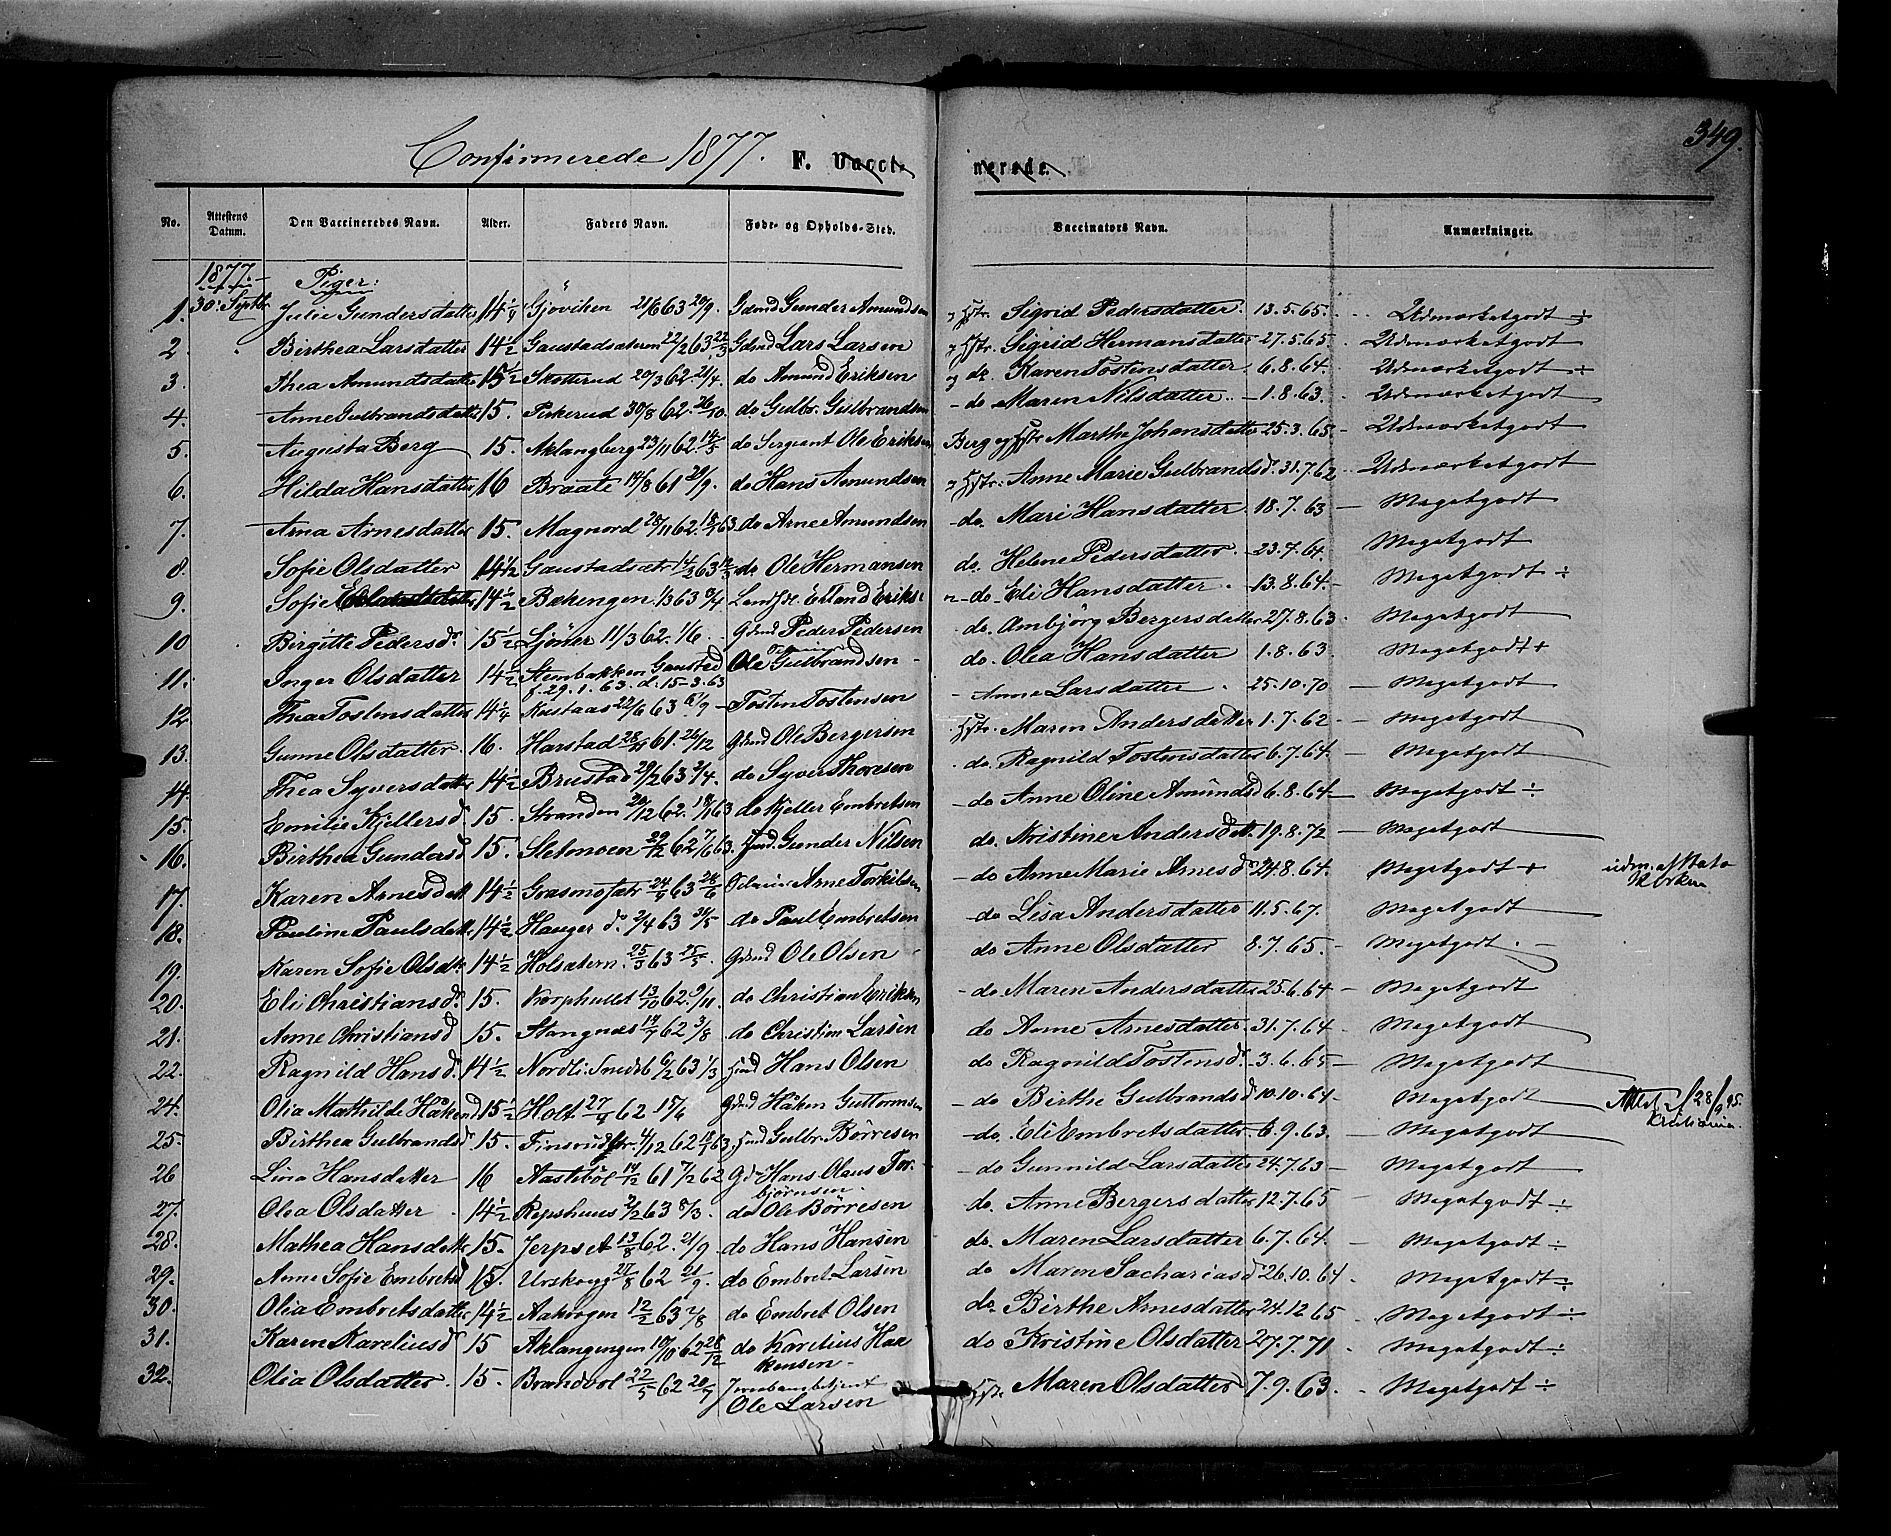 349.
Confirmerede 1877. F. Vacci- nerede.
No. Attestens Datum. Den Vaccineredes Navn. Alder. Faders Navn. Føde- og Opholds-Sted. Vaccinators Navn. Anmærkninger.
1877 Piger:
1. 30. Septbr Julie Gundersdatter 14 1/4 Gjøviken 21/6 63 20/9. Gdmd Gunder Amundsen Hstr. Sigrid Pedersdatter 13.5.65. Udmærketgodt ÷
2 Birthea Larsdatter 14 1/2 Gaustadsæteren 22/2 63 22/3 Gdmd Lars Larsen Hstr. Sigrid Hermansdatter 27.5.65. Udmærketgodt
3. Thea Amundsdatter 15 1/2 Skotterud 20/3 62. 21/4. do Amund Eriksen og do. Karen Tostensdatter 6.8.64. Udmærketgodt ÷
4. Anne Gulbrandsdatter 15. Pekerud 30/8 62. 26/10. do Gulbr. Gulbrandsen - do Maren Nilsdatter. 1.8.63. Udmærketgodt
5. Augusta Berg 15. Aklangberg 23/11 62. 14/5 do Sergeant Ole Eriksen Berg og Hstr Marthe Johansdatter 25.3.65 - Udmærketgodt
6. Hilda Hansdatter 16 Braate 14/8 61 29/9. do Hans Amundsen Hstr: Anne Marie Gulbrandsd. 31.7.62 Udmærketgodt
7. Anna Arnesdatter 15. Magnord 28/11 62. 18/1 63. do Arne Amundsen - do. Mari Hansdatter 18.7.63 - Megetgodt
8. Sofie Olsdatter 14 1/2 Gaustadsætr 14/2 63 12/3 do. Ole Hermansen do. Helene Pedersdatter. 23.7.64. Megetgodt
9. Sofie 14 1/2 Bækengen 63 6/4 Lensm. Erland Eriks: - do - Eli Hansdatter. 13.8.64 - Megetgodt ÷
10 Birgitte Pedersd. 15 1/2 Sjöner 11/3 62. 1/6. Gdmd Peder Pedersen do. Ambjörg Bergersdatter 27.8.63 Megetgodt
11. Inger Olsdatter 14 1/2 Stenbakken Gaustad f. 29.1.63. d. 15-3.63 Ole Gulbrandsen - do. Olea Hansdatter 1.8.63 Megetgodt +
12 Thea Tostensdatter 14 1/4 Kustaas 22/6 63 6/9 - Tosten Tostensen - Anne Larsdatter. 25.10.70 - Megetgodt
13. Gunne Olsdatter. 16. Harstad 28/9 61. 26/12 Gdmd Ole Bergersen Hstr. Maren Andersdatter 1.7.62 - Megetgodt
14. Thea Syversdatter 14 1/2 Brustad 29/2 63 3/4. do Syver Thoresen do. Ragnild Tostensdatter 6.7.64. - Megetgodt
15. Emilie Kjellersd. 15. Stranden 20/12 62. 18/1 63 do Kjeller Embretsen - do Anne Oline Amundsd 6.8.64 - Megetgodt ÷
16. Birthea Gundersd 15. Sletmoen 29/12 62 7/6 63. Hmd. Gunder Nilsen do. Kristine Andersdatt. 19.8.72 - Megetgodt
17. Karen Arnesdatt 14 1/2 Grasmosætr 24/4 63 28/6 Arne Torkilsen - do Anne Marie Arnesd. 24.8.64. - Megetgodt +
18. Pauline Paulsdatt. 14 1/2 Hauger d. 2/4 63 31/5 do Paul Embretsen - do Lisa Andersdatter 11.5.67. Megetgodt
19. Karen Sofie Olsdatt 14 1/2 Holsætern. 25/3 63 25/5. Gdmd Ole Olsen do Anne Olsdatter 8.7.65 - Megetgodt. -
20. Eli Christiansd. 15. Korphullet 13/10 62. 9/11. do Christian Eriksen - do Maren Andersdatter 25.6.64 - Megetgodt
21. Anne Christiansd 15. Stangnæs 14/7 62 3/8 do Christian Larsen do Anne Arnesdatter 31.7.64 - Megetgodt
22. Ragnild Hansd. 14 1/2 Nordli: Smedst 6/2 63 1/3 Hmd Hans Olsen do Ragnild Tostensd. 3.6.65 - Megetgodt
24. Olea Mathilde Håkensd 15 1/2 Holt 27/4 62 15/6 Gdmd Håken Guttormsen - do Birthe Gulbrandsd 10.10.64 - Megetgodt
Attest 28/9 95. Kristiania.
25. Birthea Gulbrandsd 15. Finsrud 4/12 62 18/1 63. Hmd Gulbr. Börresen - do. Eli Embretsdatter 6.9.63. Megetgodt
26 Lina Hansdatter 16 Nastebøl 14/12 61 7/2 62 Gd - Hans Olaus Torbjörnsen - do Gunnild Larsdatter 24.7.63 - Megetgodt
27. Olea Olsdatter. 14 1/2 Repshuus 3/2 63 8/3. do Ole Börresen do. Anne Bergersdatter 12.7.65 - Megetgodt ÷
28. Mathea Hansdatt. 15. Jerpset 13/8 62. 21/9. do Hans Hansen do. Maren Larsdatter 6.7.64. - Megetgodt ÷
29. Anne Sofie Embretsd 15. Urskoug 27/8 62 21/9. do Embret Larsen do Maren Sachariasd 26.10.64. Megetgodt ÷
30. Olea Embretsdatter 14 1/2 Aakrogen 12/2 63 2/8 do Embret Olsen do. Birthe Arnesdatter 24.12.65 Megetgodt ÷
31. Karen Kareliusd 15 Aklangengen 10/10 62 28/12 do Karelius Haakensen - do Kristine Olsdatter 27.7.71 - Megetgodt ÷
32. Olea Olsdatter. 15. Brandvol 22/5 62 20/7 Jernbanebetjent Ole Larsen Hstr. Maren Olsdatter 7.9.63. - Megetgodt ÷